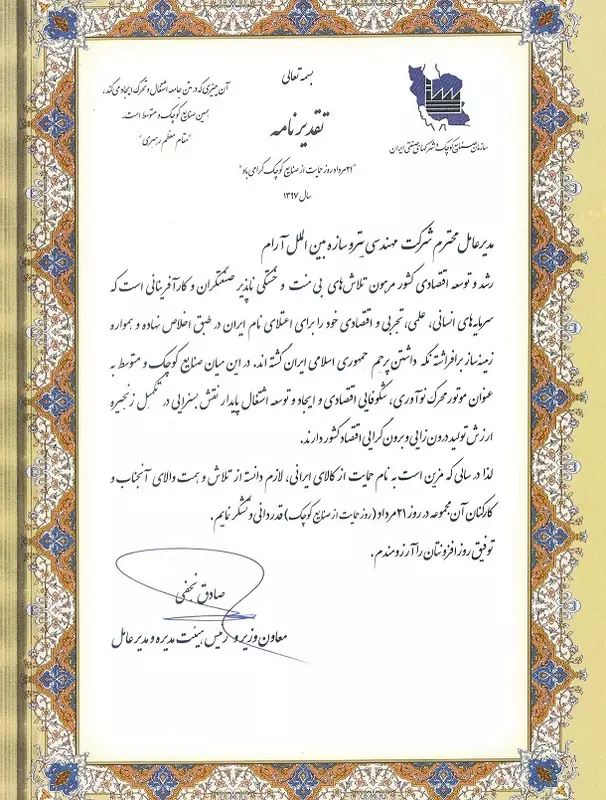 بسمه تعالی
سازمان صنایع کوچک و شهرکهای صنعتی ایران
آن چیزی که در متن جامعه اشتغال و تحرک ایجاد می‌کند،
همین صنایع کوچک و متوسط است.
"مقام معظم رهبری"
تقدیرنامه
"۲۱ مرداد روز حمایت از صنایع کوچک گرامی باد"
سال ۱۳۹۷
مدیرعامل محترم شرکت مهندسی پترو سازه بین الملل آرام
رشد و توسعه اقتصادی کشور مرهون تلاش‌های بی منت و خستگی ناپذیر صنعتگران و کارآفرینانی است که
سرمایه‌های انسانی، علمی، تجربی و اقتصادی خود را برای اعتلای نام ایران در طبق اخلاص نهاده و همواره
زمینه‌ساز برافراشته نگه داشتن پرچم جمهوری اسلامی ایران گشته اند. در این میان صنایع کوچک و متوسط به
عنوان موتور محرک نوآوری، شکوفایی اقتصادی و ایجاد و توسعه اشتغال پایدار نقش بسزایی در تکمیل زنجیره
ارزش تولید درون زایی و برون گرایی اقتصاد کشور دارند.
لذا در سالی که مزین است به نام حمایت از کالای ایرانی، لازم دانسته از تلاش و همت والای آنجناب و
کارکنان آن مجموعه در روز ۲۱ مرداد (روز حمایت از صنایع کوچک) قدردانی و تشکر نمایم.
توفیق روز افزونتان را آرزومندم.
صادق نجفی
معاون وزیر و رئیس هیئت مدیره و مدیر عامل